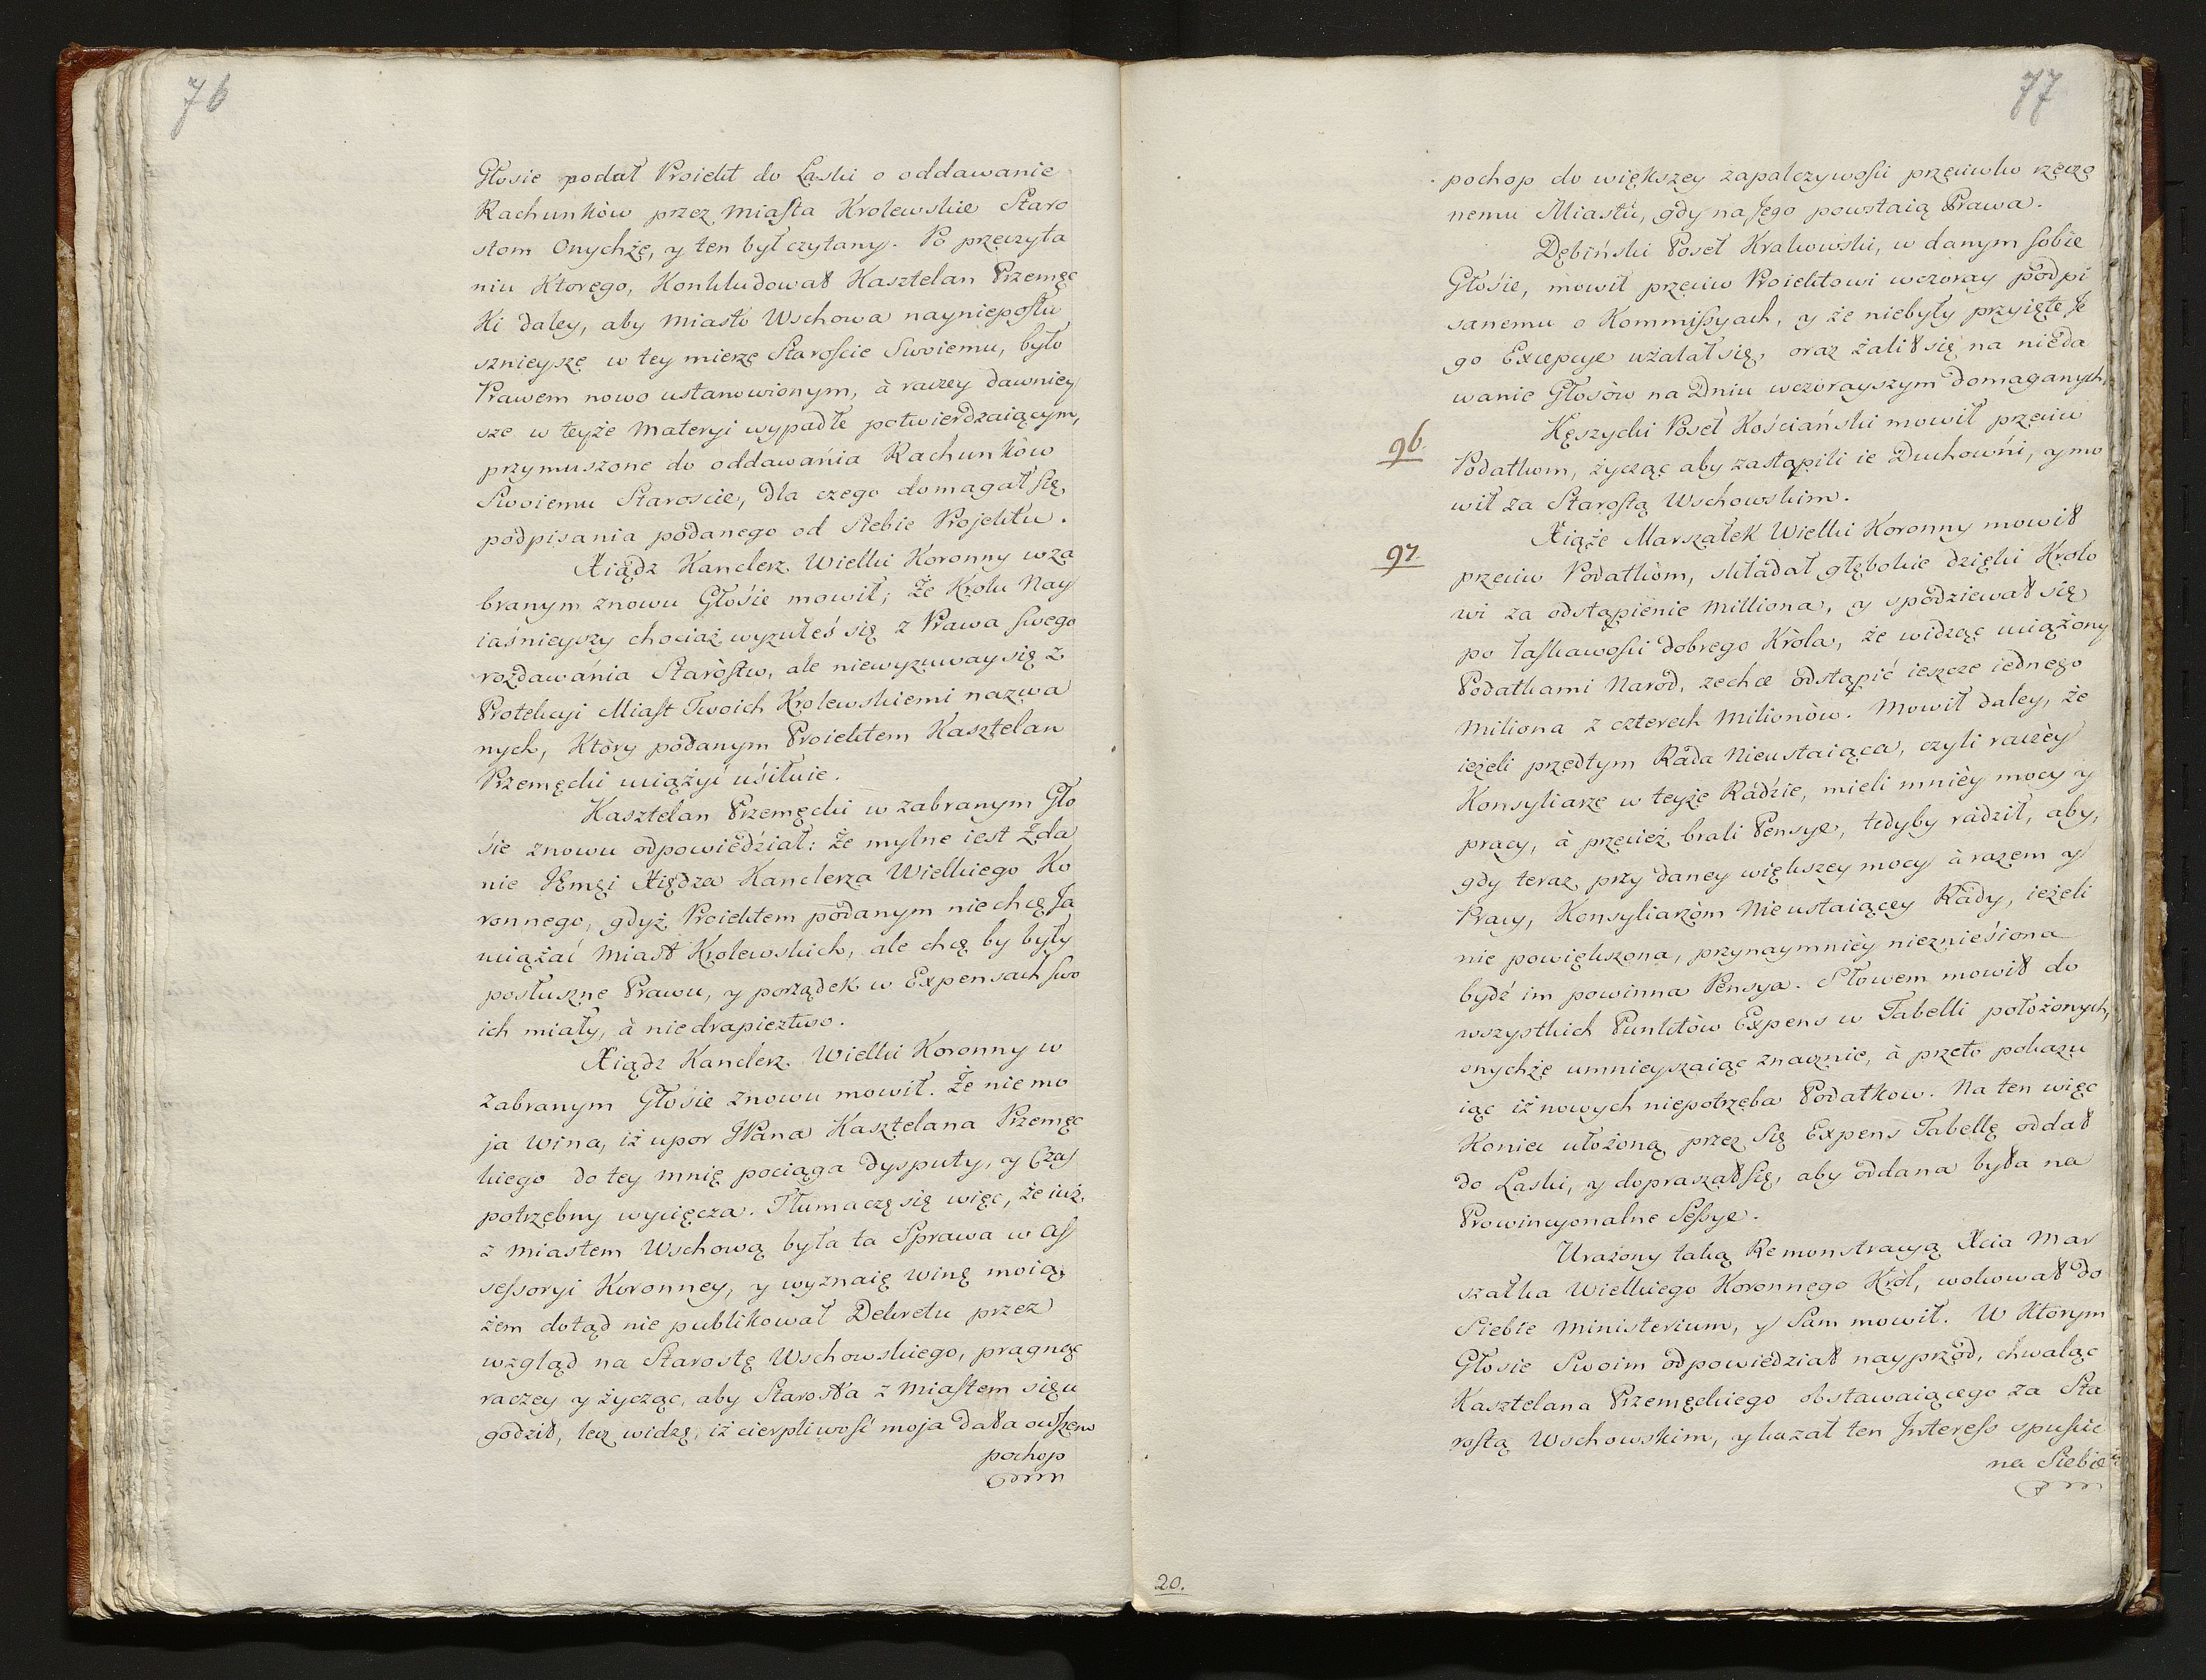 76
Głosie podał Proiekt do Laski o oddawanie
Rachunków przez Miasta Krolewskie Staro
stom Onychże, y ten był czytany. Po przeczyta
niu Ktorego, Konkludował Kasztelan Przemęc
Ki daley, aby Miasto Wschowa nayniepoſłu
sznieysze w tey mierze Staroście Swoiemu, było
Prawem nowo ustanowionym, à raczey dawniey
sze w teyże Materyi wypadłe potwierdzaiącym,
przymuszone do oddawania Rachunków
Swoiemu Staroscie, dla czego domagał się
podpisania podanego od siebie Projektu.
Xiądz Kanclerz Wielki Koronny w za
branym znowu Głosie mowił; Że Krolu Nay
iaśnieyszy chociaż wyzułeś się z Prawa swego
rozdawánia Staròstw, ale niewyzuway się z
Protekcyi Miast Twoich Krolewskiemi nazwa
nych, Który podanym Proiektem Kasztelan
Przemęcki uciążyć usiłuie.
Kasztelan Przemęcki w zabranym Gło
sie znowu odpowiedział: Że mylne iest Zda
nie JEmci Xiędza Kanclerza Wielkiego Ko
ronnego, gdyż Proiektem podanym nie chcę Ja
uciążać Miast Krolewskich, ale chcę by były
posłuszne Prawu, y porządek w Expensach swo
ich miały, à nie drapieztwo.
Xiądz Kanclerz Wielki Koronny w
zabranym Głosie znowu mowił. Że nie mo
ja wina, iż upor JPana Kasztelana Przemęc
kiego do tey mnię pociąga dysputy, y Czas
potrzebny wycięcza. Tłumaczę się więc, że iuż
z Miastem Wschową była ta Sprawa w As
sessoryi Koronney, y wyznaię winę moią,
żem dotąd nie publikował Dekretu przez
wzgląd na Starostę Wschowskiego, pragnąc
raczey y życząc, aby Starosta z Miastem się u
godził, lecz widzę, iż cierpliwość moja dała owszem
pochop
77
pochop do większey zapalczywości przeciwko rzeczo
nemu Miastu, gdy na Jego powstaią Prawa.
Dębiński Poseł Krakowski, w danym sobie
Głosie, mowił przeciw Proiektowi wczoray podpi
sanemu o Kommissyach, y że niebyły przyięte Je
go Excepcye użalał się, oraz żalił się na nieda
wanie Głosów na Dniu wczorayszym domaganych.
96.
Kęszycki Poseł Kościański mowił przeciw
Podatkom, życząc aby zastąpili ie Duchowni, y mo
wił za Starostą Wschowskim.
97.
Xiąże Marszałek Wielki Koronny mowił
przeciw Podatkòm, składał głębokie dzięki Krolo
wi za odstąpienie Milliona, y spodziewał się
po łaskawości dobrego Króla, że widząc uciążony
Podatkami Naród, zechce odstąpić ieszcze iednego
Miliona z czterech Milionòw. Mowił daley, że
ieżeli przedtym Rada Nieustaiąca, czyli raczéy
Konsyliarze w teyże Radzie, mieli mniéy mocy y
pracy, à przecież brali Pensye, tedyby radził, aby,
gdy teraz przy daney większey mocy à razem y
Pracy, Konsyliarzòm Nieustaiącey Rady, ieżeli
nie powiększona, przynaymniéy nieznieśiona
bydź im powinna Pensya. Słowem mowił do
wszystkich Punktòw Expens w Tabelli położonych,
onychże umnieyszaiąc znacznie, à przeto pokazu
iąc iż nowych niepotrzeba Podatkow. Na ten więc
Koniec ułożoną przez się Expens Tabellę oddał
do Laski, y dopraszał się, aby oddana była na
Prowincyonalne Sessye.
Urażony taką Remonstracyą Xcia Mar
szałka Wielkiego Koronnego Król, wokował do
Siebie Ministerium, y Sam mowił. W Którym
Głosie Swoim odpowiedział nayprzód, chwaląc
Kasztelana Przemęckiego obstawaiącego za Sta
rostą Wschowskim, y kazał ten Interess spuścić
na Siebie
20.